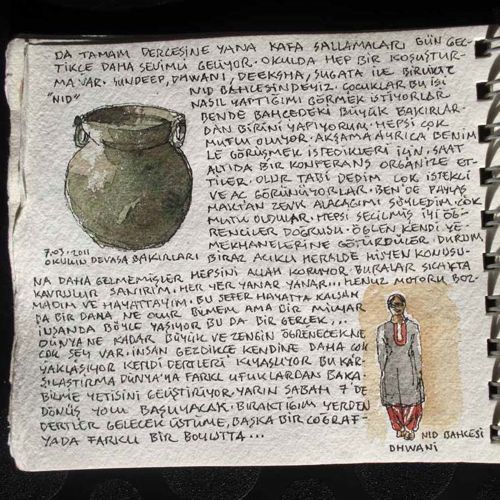 DA TAMAM DERCESİNE YANA KAFA SALLAMALARI GÜN GEÇ-
TİKÇE DAHA SEVİMLİ GELİYOR. OKULDA HEP BİR KOŞUŞTUR-
MA VAR. SUNDEEP, DHWANI, DEEKSHA, SUGATA İLE BİRLİKTE
"NID"
NID BAHÇESİNDEYİZ. ÇOCUKLAR BU İŞİ
NASIL YAPTIĞIMI GÖRMEK İSTİYORLAR
BENDE BAHÇEDEKİ BÜYÜK BAKIRLAR-
DAN BİRİNİ YAPIYORUM. HEPSİ ÇOK
MUTLU OLUYOR. AKŞAMA AYRICA BENİM
LE GÖRÜŞMEK İSTEDİKLERİ İÇİN. SAAT
ALTIDA BİR KONFERANS ORGANİZE ET-
TİLER. OLUR TABİ DEDİM ÇOK İSTEKLİ
VE AÇ GÖRÜNÜYORLAR. BEN'DE PAYLAŞ
MAKTAN ZEVK ALACAĞIMI SÖYLEDİM. ÇOK
MUTLU OLDULAR. HEPSİ SEÇİLMİŞ İYİ ÖĞ-
RENCİLER DOĞRUSU. ÖĞLEN KENDİ YE-
MEKHANELERİNE GÖTÜRDÜLER. DURUM
BİRAZ ACIKLI HERALDE HİJYEN KONUSU-
7.03.2011
OKULUN DEVASA BAKIRLARI
NA DAHA GELMEMİŞLER HEPSİNİ ALLAH KORUYOR. BURALAR SICAKTA
KAVRULUR SANIRIM. HER YER YANAR YANAR... HENÜZ MOTORU BOZ-
MADIM VE HAYATTAYIM. BU SEFER HAYATTA KALSAM
DA BİR DAHA NE OLUR BİLMEM AMA BİR MİLYAR
İNSANDA BÖYLE YAŞIYOR BU DA BİR GERÇEK...
DÜNYA NE KADAR BÜYÜK VE ZENGİN ÖĞRENECEK NE
ÇOK ŞEY VAR. İNSAN GEZDİKÇE KENDİNE DAHA ÇOK
YAKLAŞIYOR KENDİ DERTLERİ KIYASLIYOR BU KAR-
ŞILAŞTIRMA DÜNYA'YA FARKLI UFUKLARDAN BAKA
BİLME YETİSİNİ GELİŞTİRİYOR. YARIN SABAH 7'DE
DÖNÜŞ YOLU BAŞLIYACAK. BIRAKTIĞIM YERDEN
DERTLER GELECEK ÜSTÜME, BAŞKA BİR COĞRAF-
YADA FARKLI BİR BOYUTTA...
NID BAHÇESİ
DHWANI